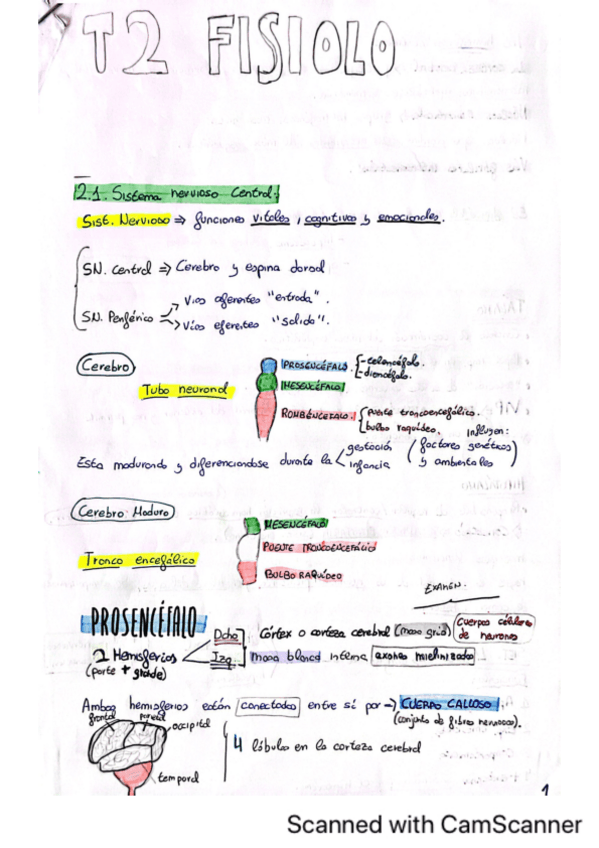 T2 FISIOLO
2.1. Sistema nervioso Central:
Sist. Nervioso => funciones vitales, cognitivas y emocionales.
SN. Central => Cerebro y espina dorsal
S.N. Periférico -> Vías aferentes "entrada".
-> Vías eferentes "salida".
Cerebro
Tubo neuronal
PROSENCÉFALO. - telencéfalo.
- diencéfalo.
MESENCÉFALO
ROMBENCÉFALO. puente troncoencefálico.
bulbo raquídeo.
Influyen:
Esta madurando y diferenciandose durante la < gestación
infancia
(factores genéticos
y ambientales)
Cerebro Maduro
Tronco encefálico
MESENCÉFALO
PUENTE TRONCOENCEFÁLICO
BULBO RAQUÍDEO
EXAMEN.
PROSENCÉFALO
2 Hemisferios
(parte + grande)
Dcho Córtex o corteza cerebral (masa gris) Cuerpos celulares de neuronas
Izq. masa blanca interna axones mielinizados
Ambos hemisferios están conectados entre sí por -> CUERPO CALLOSO.
(conjunto de fibras nerviosas).
frontal
parietal
occipital
temporal
4 lóbulos en la corteza cerebral
1
Scanned with CamScanner